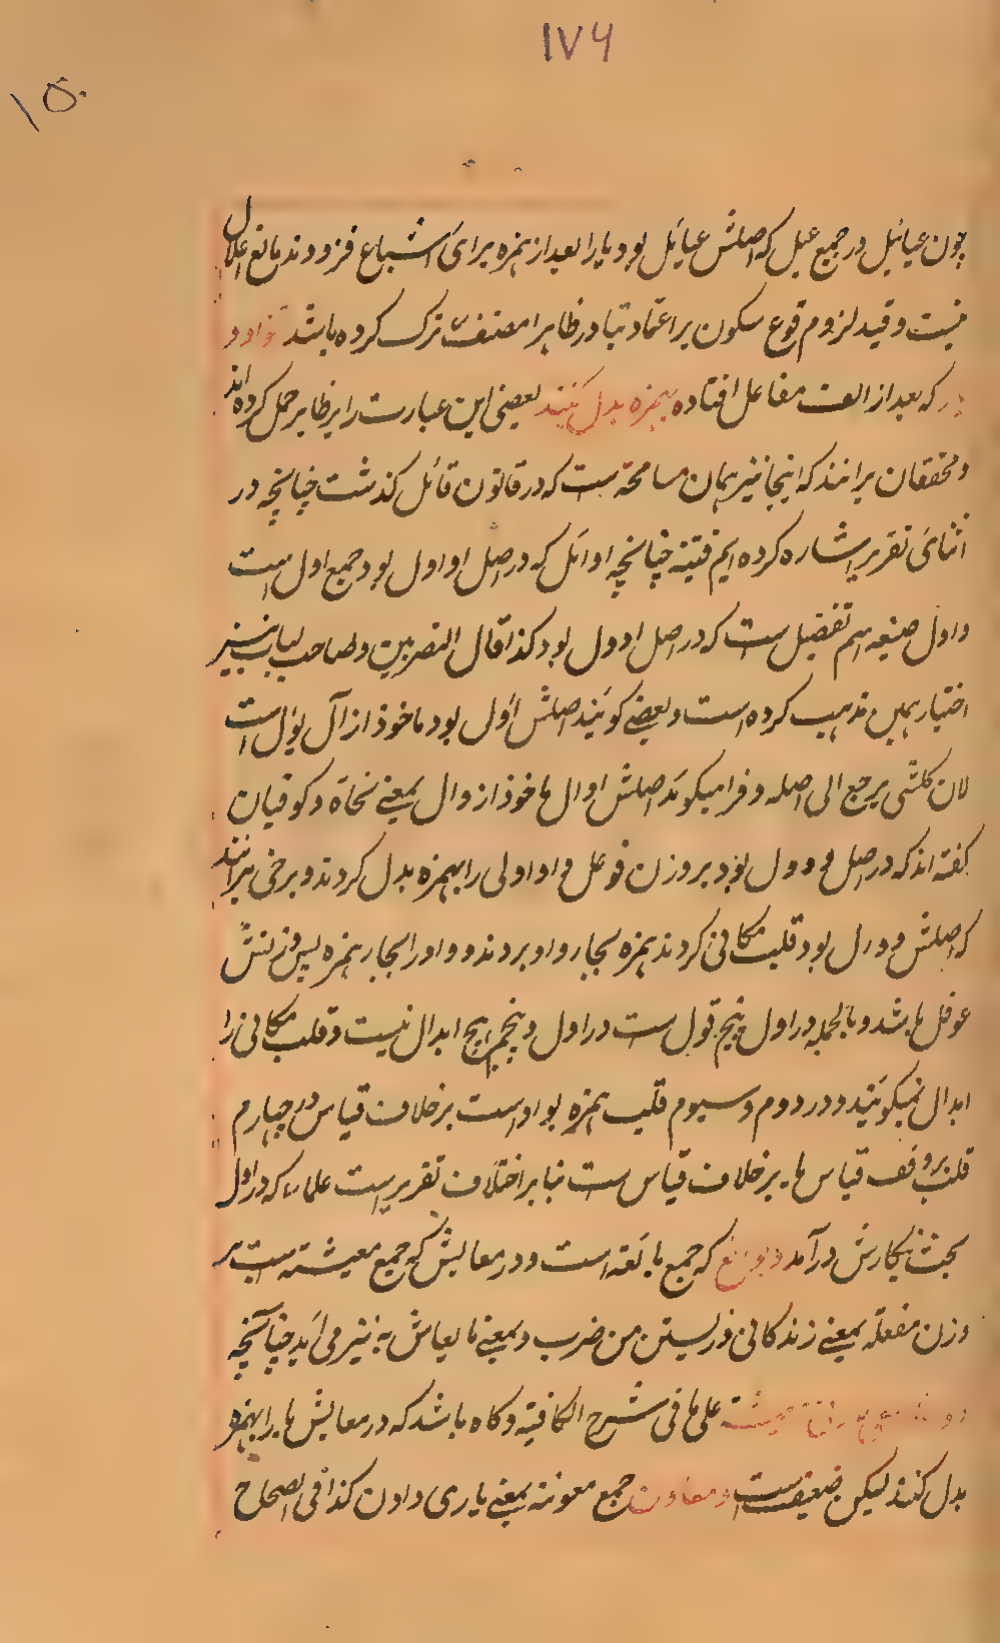 ۱۷۶
۱۵۰
چون عیائیل در جمع عیل که اصلش عیائل بود یا را بعد از همزه برای اشباع فزودند مانع اعلال
نیست و قید لزوم قوع سکون بر اعتماد تبادر ظاهرا مصنف ترک کرده باشد واو و
که بعد از الف مفاعل افتاده بهمزه بدل کنند بعضی این عبارت را بر ظاهر حمل کرده‌اند
و محققان برانند که اینجا نیز همان مسامحة ست که در قانون قائل گذشت چنانچه در
اثنای تقریر اشاره کرده ایم فتیته چنانچه اوائل که در اصل اواول بود جمع اول است
و اول صیغه اسم تفضیل ست که در اصل اوول بود کذا قال البصریین و صاحب لباب نیز
اختیار همین مذهب کرده است و بعضے گویند اصلش اؤل بود ماخوذ از آل یؤل است
لان کلشی یرجع الی اصله و فرا میگوید اصلش اوال ماخوذ از وال بمعنے نجاة و کوفیان
گفته اند که در اصل وول بود بر وزن فوعل واو اولی را بهمزه بدل کردند و برخی برانند
که اصلش وورل بود قلب مکانی کردند همزه بجای واو بردند و واو را بجای همزه پس وزنش
عوفل باشد و بالجمله در اول پنج قول ست در اول و پنجم هیچ ابدال نیست و قلب مکانی را
ابدال نمیگویند و در دوم و سیوم قلب همزه بواو ست بر خلاف قیاس در چهارم
قلب بر وفق قیاس یا بر خلاف قیاس ست بنا بر اختلاف تقریرست علماء که در اول
بحث نگارش در آمد و بوائع که جمع بائعه است و در معایش که جمع معیشته است بر
وزن مفعلة بمعنے زندگانی و زیستن من ضرب و بمعنے ما یعاش به نیز می آید چنانچه
معیشة علی ما فی شرح الکافیة و گاه باشد که در معایش یا را بهمزه
بدل کنند لیکن ضعیف است و معاون جمع معونه بمعنے یاری دادن کذا فی الصحاح